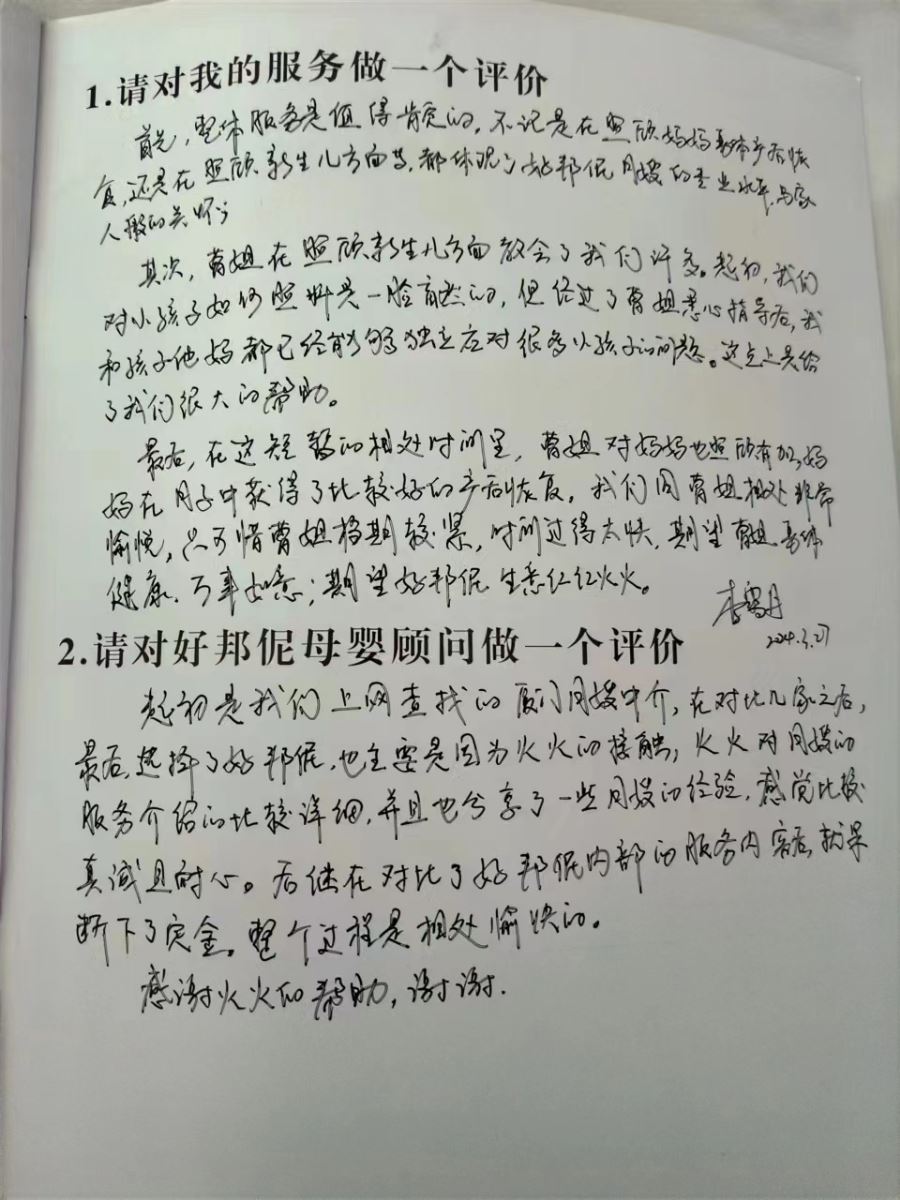 1.请对我的服务做一个评价
首先,整体服务是值得肯定的。不论是在照顾妈妈身体产后恢
复,还是在照顾新生儿方面等,都体现了好邦伲月嫂的专业水平,与家
人般的关怀;
其次,曹姐在照顾新生儿方面教会了我们许多。起初,我们
对小孩子如何照料是一脸茫然的,但经过了曹姐悉心指导后,我
和孩子他妈都已经能够独立应对很多小孩子的问题。这点上是给
了我们很大的帮助。
最后,在这短暂的相处时间里,曹姐对妈妈也照顾有加,妈
妈在月子中获得了比较好的产后恢复。我们同曹姐相处非常
愉悦,只可惜曹姐档期较紧,时间过得太快,期望曹姐身体
健康、万事如意;期望好邦伲生意红红火火。
2024.3.27
2.请对好邦伲母婴顾问做一个评价
起初是我们上网查找的厦门月嫂中介,在对比几家之后,
最后选择了好邦伲,也主要是因为火火的接触,火火对月嫂的
服务介绍的比较详细,并且也分享了一些月嫂的经验,感觉比较
真诚且耐心。后继在对比了好邦伲内部的服务内容后,就果
断下了定金。整个过程是相处愉快的。
感谢火火的帮助,谢谢.